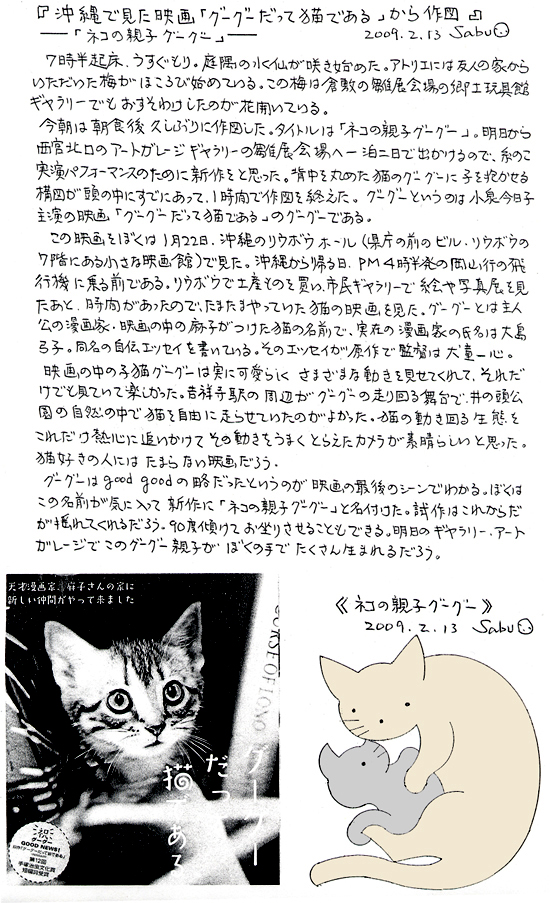 『沖縄で見た映画「グーグーだって猫である」から作図』
──「ネコの親子グーグー」── 2009.2.13 Sabu
7時半起床、うすぐもり。庭隅の水仙が咲き始めた。アトリエには友人の家から
いただいた梅がほころび始めている。この梅は倉敷の雛展会場の郷土玩具館
ギャラリーでもおすそわけしたのが花開いている。
今朝は朝食後久しぶりに作図した。タイトルは「ネコの親子グーグー」。明日から
西宮北口のアートガレージギャラリーの雛展会場へ一泊二日で出かけるので、糸のこ
実演パフォーマンスのために新作をと思った。背中を丸めた猫のグーグーに子を抱かせる
構図が頭の中にすでにあって、1時間で作図を終えた。グーグーというのは小泉今日子
主演の映画「グーグーだって猫である」のグーグーである。
この映画をぼくは1月22日、沖縄のリウボウホール(県庁の前のビル・リウボウの
7階にある小さな映画館)で見た。沖縄から帰る日、PM4時半発の岡山行の飛
行機に乗る前である。リウボウで土産ものを買い、市民ギャラリーで絵や写真展を見
たあと、時間があったので、たまたまやっていた猫の映画を見た。グーグーとは主人
公の漫画家・映画の中の麻子がつけた猫の名前で、実在の漫画家の氏名は大島
弓子。同名の自伝エッセイを書いている。そのエッセイが原作で監督は犬童一心。
映画の中の子猫グーグーは実に可愛らしく さまざまな動きを見せてくれて、それだ
けでも見ていて楽しかった。吉祥寺駅の周辺がグーグーの走り回る舞台で、井の頭公
園の自然の中で猫を自由に走らせていたのがよかった。猫の動き回る生態を
これだけ熱心に追いかけてその動きをうまくとらえたカメラが素晴らしいと思った。
猫好きの人にはたまらない映画だろう。
グーグーはgood goodの略だったというのが映画の最後のシーンでわかる。ぼくは
この名前が気に入って新作に「ネコの親子グーグー」と名付けた。試作はこれからだ
が揺れてくれるだろう。90度傾けてお坐りさせることもできる。明日のギャラリー・アート
ガレージでこのグーグー親子がぼくの手でたくさん生まれるだろう。
天才漫画家、麻子さんの家に
新しい仲間がやって来ました
グーグー
だって
猫である
GOOD NEWS!
第12回
手塚治虫文化賞
短編賞受賞
《ネコの親子グーグー》
2009.2.13 Sabu